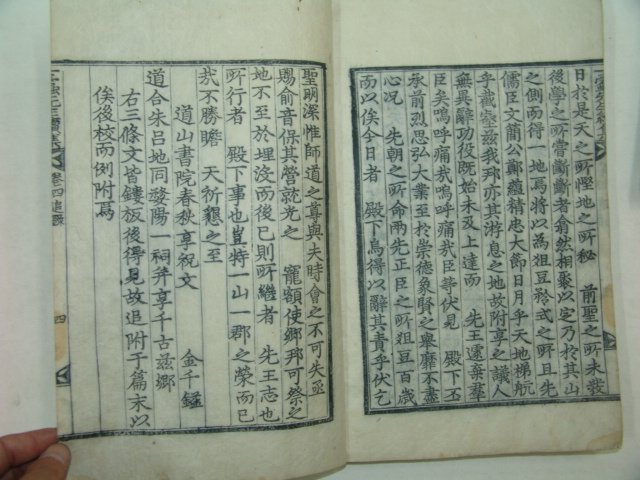 日於是天之所慳地之所秘 前聖之所未發
後學之所嘗斷斷者翕然相聚以定乃於其山
之側而得一地焉將以爲俎豆矜式之所且先
儒臣文簡公鄭蘊精忠大節日月乎天地梯航
乎截寇玆我邦亦其游息之地故附享之議人
無異辭功役旣始未及上達而 先王遽棄羣
臣矣嗚呼痛哉嗚呼痛哉臣等伏見 殿下丕
承前烈思弘大業至於崇德象賢之擧靡不盡
心况 先朝之所命兩先正臣之所俎豆百歲
而以俟今日者 殿下烏得以辭其責乎伏乞
聖明深惟師道之尊與夫時會之不可失亟
賜俞音俾其營就光之 寵額使鄉邦可祭之
地不至於埋沒而後已則所繼者 先王志也
所行者 殿下事也豈特一山一郡之榮而已
哉不勝瞻 天祈懇之至
道山書院春秋享祝文 金千鎰
道合朱呂地同發陽 祠幷享千古玆鄉
右三條文皆鏤板後得見故追附于篇末以
俟後校而例附焉
卷四追錄 四